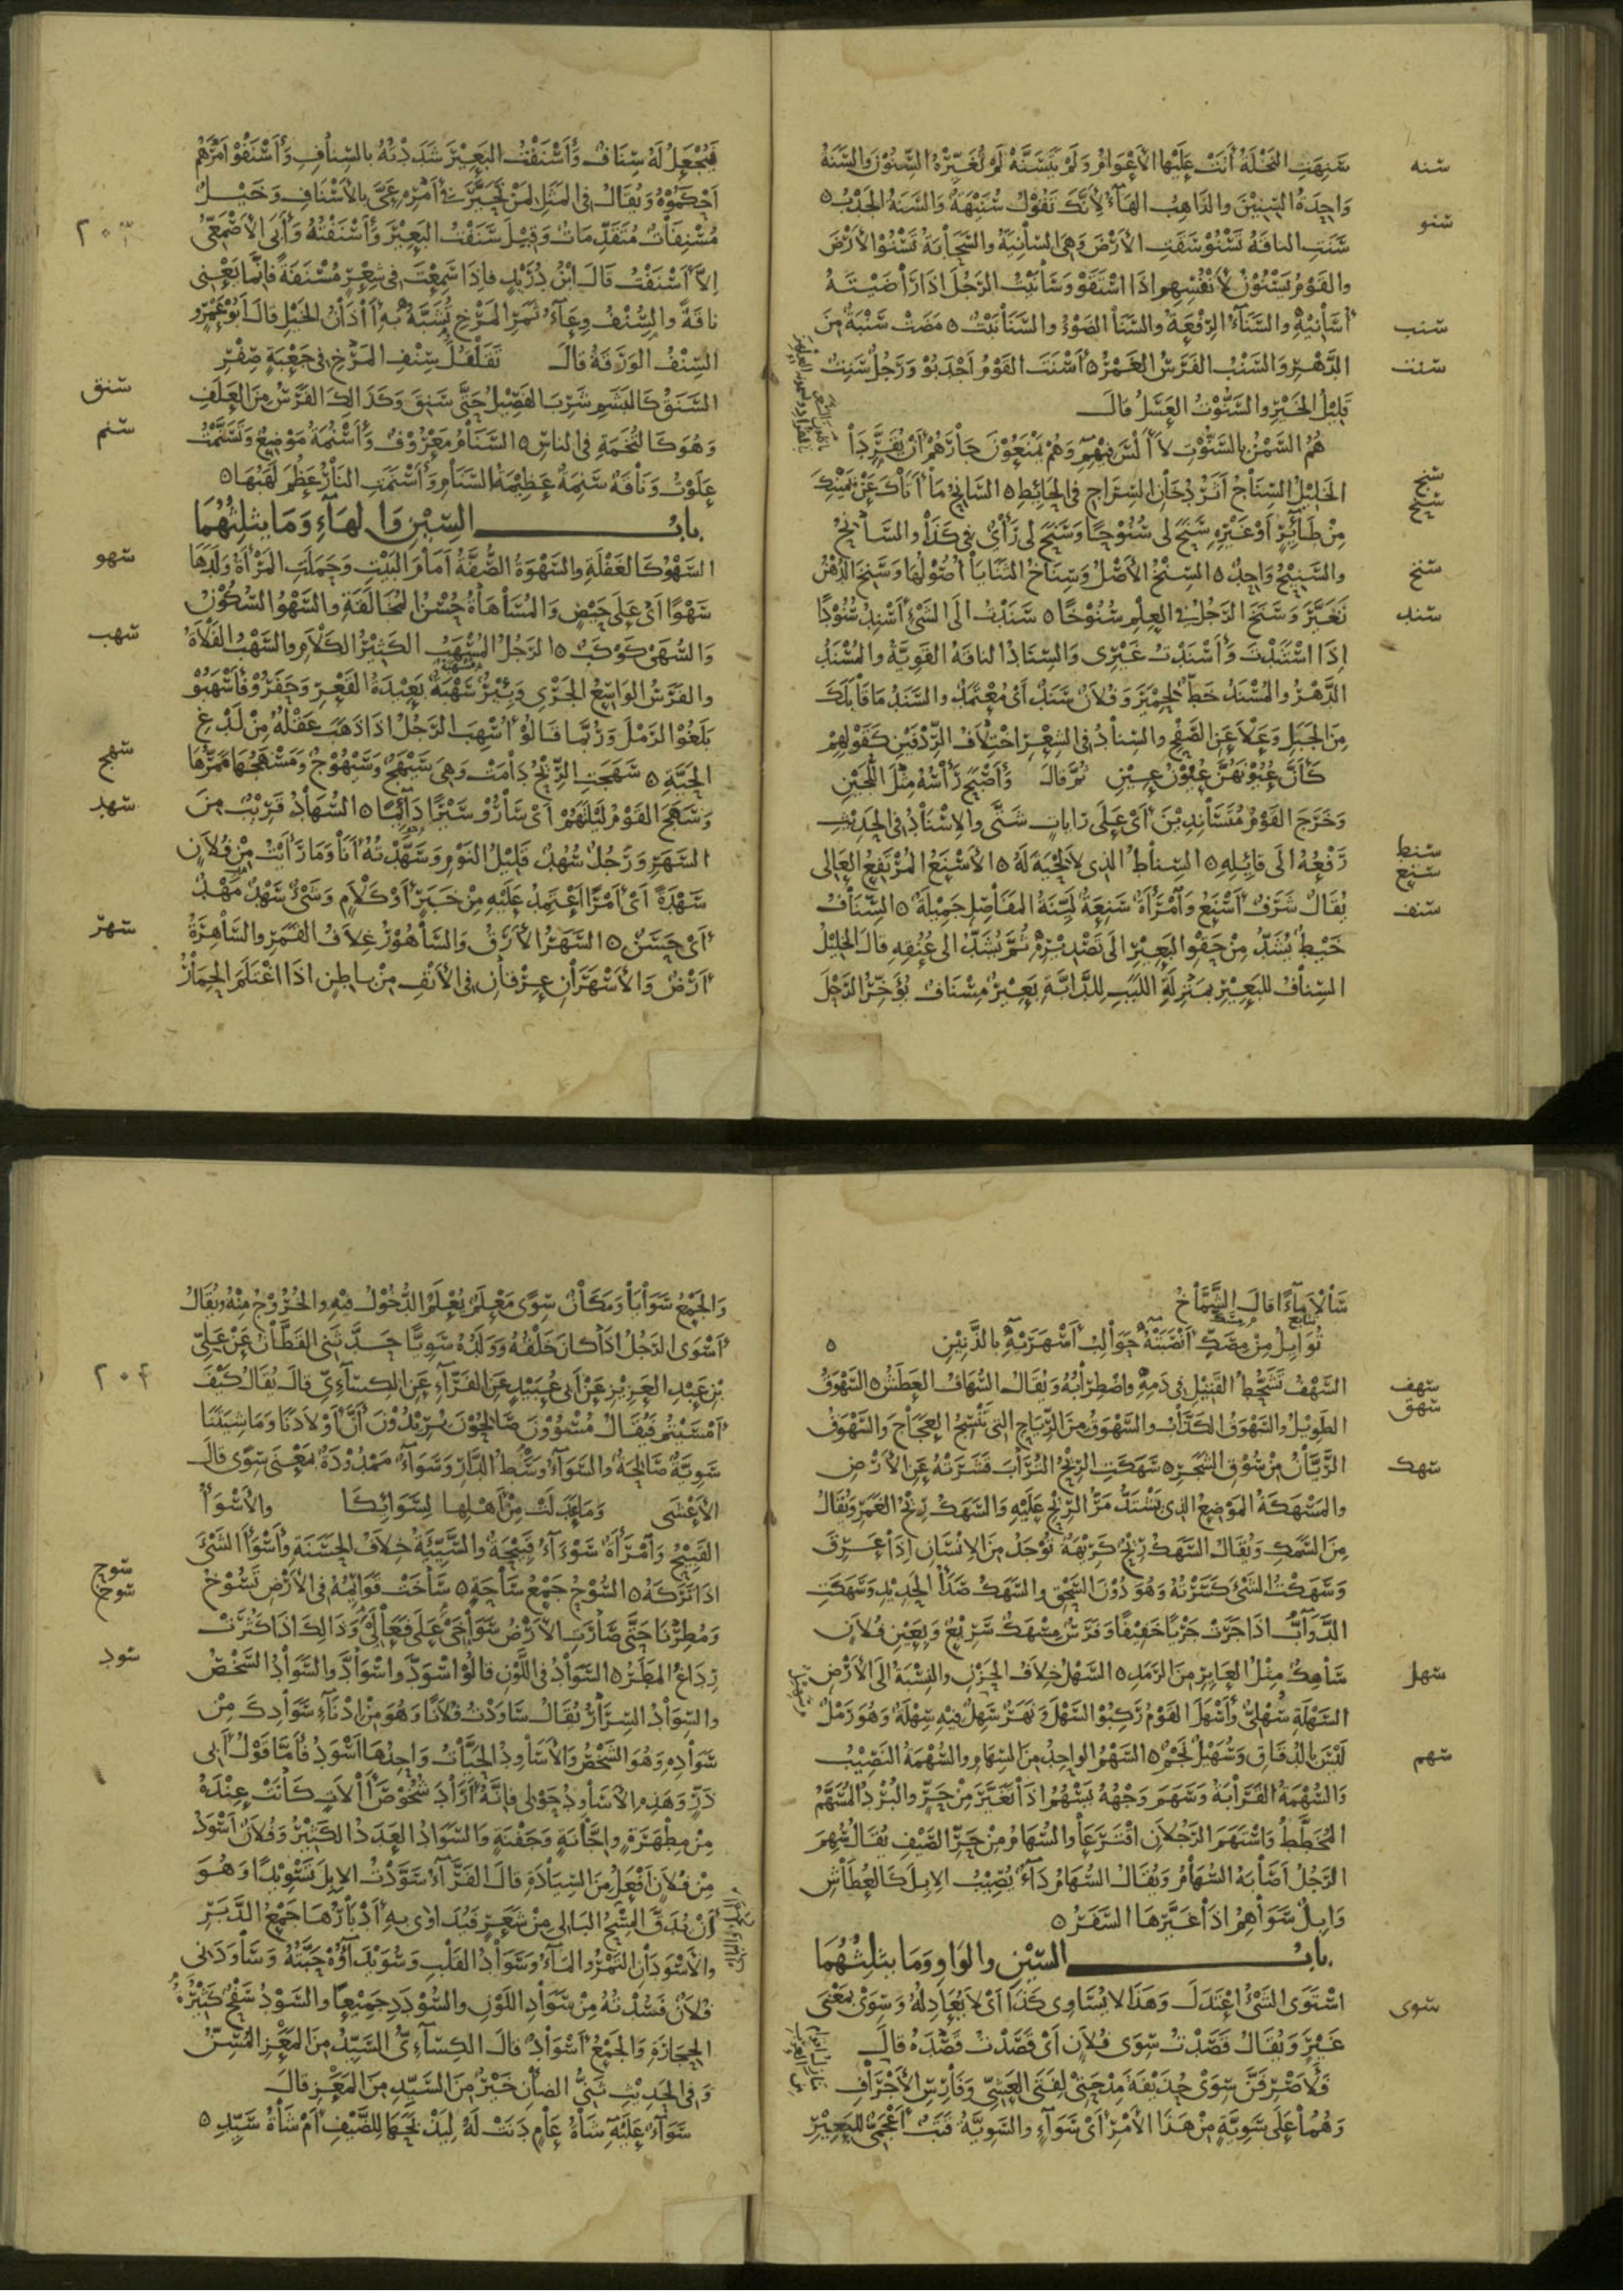 سنه
سَنِهَتِ النَّخْلَةُ أَتَتْ عَلَيْهَا الأَعْوَامُ وَلَمْ يَتَسَنَّهْ لَمْ تُغَيِّرْهُ السِّنُوْنَ وَالسَّنَةُ
وَاحِدَةُ السِّنِيْنَ والذَاهِبُ الهَاءُ لأَنَّكَ تَقُوْلُ سُنَيْهَةٌ وَالسَّنَةُ الجَدْبُ ٥
سنو
سَنَتِ الناقَةُ تَسْنُوْ سَقَتِ الأَرْضَ وَهِيَ السَّانِيَةُ والسَّحَابَةُ تَسْنُوْ الأَرْضَ
والقَوْمُ يَسْنُوْنَ لأَنْفُسِهِم اذَا اسْتَقَوْ وَسَانَيْتُ الرَجُلَ اذَا رَاضَيْتَهُ
أُسَانِيْهِ والسَّنَاءُ الرِفْعَةُ والسَّنَا الضَوْءُ والسَّنَا نَبْتٌ ٥ مَضَتْ سَنْبَةٌ مِنَ
سنب
الدَّهْرِ وَالسَّنْبُ الفَرَسُ الغَمْرُ ٥ أَسْنَتَ القَوْمُ أَجْدَبُوْ وَرَجُلٌ سَنِتٌ
سنت
قَلِيْلُ الخَيْرِ والسَّنُّوْتُ العَسَلُ قالَ
هُمُ السَّمْنُ بالسَّنُّوْتِ لاَ أَلْسَ فِيْهِمِ وَهُمْ يَمْنَعُوْنَ جَارَهُمْ أَنْ يُقَرَّدَا
سنج
الخَلِيْلُ السِّنَاجُ أَثَرُ دُخَانِ السِّرَاجِ فى الحَائِطِ ٥ السَّانِحُ مَا أَتَاكَ عَنْ يَمِيْنِكَ
سنح
مِنْ طَائِرٍ أَوْ غَيْرِهِ سَنَحَ لى سُنُوْحًا وَسَنَحَ لى رَأْىٌ فى كَذَا والسَّانِحُ
والسَّنِيْحُ وَاحِدٌ ٥ السِنْخُ الأَصْلُ وَسِنَاخُ الثَنَايَا أُصُوْلُهَا وَسَنِخَ الدُهْنُ
سنخ
تَغَيَّرَ وَسَنَخَ الرَجُلُ فى العِلْمِ سُنُوْخًا ٥ سَنَدْتُ الَى الشَىْءِ أَسْنُدُ سُنُوْدًا
سند
إِذَا اسْتَنَدْتَ وَأَسْنَدْتُ غَيْرِى وَالسِّنَادُ الناقَةُ القَوِيَّةُ والمُسْنَدُ
الدَّهْرُ والمُسْنَدُ خَطٌّ لِحِمْيَرَ وَفُلاَنٌ سَنَدٌ أَىْ مُعْتَمَدٌ والسَّنَدُ مَا قَابَلَكَ
مِنَ الجَبَلِ وَعَلاَ عَنِ السَّفْحِ والسِنَادُ فى الشِعْرِ اخْتِلاَفُ الرِّدْفَيْنِ كَقَوْلِهِمْ
كَأَنَّ عُيُوْنَهُنَّ عُيُوْنُ عِيْنِ ثُمَّ قالَ وَأَصْبَحَ رَأْسُهُ مِثْلَ اللُّجَيْنِ
وَخَرَجَ القَوْمُ مُتَسَانِدِيْنَ أَىْ عَلَى رَايَاتٍ شَتَّى والإِسْنَادُ فى الحَدِيْثِ
رَفْعُهُ الَى قائِلِهِ ٥ السِّنَاطُ الذى لاَ لِحْيَةَ لَهُ ٥ الأَسْنَعُ المُرْتَفِعُ العَالِى
سنط
سنع
يُقَالُ شَرَفٌ أَسْنَعُ وَامْرَأَةٌ سَنِعَةٌ لَيِّنَةُ المَفَاصِلِ جَمِيْلَةٌ ٥ السِّنَافُ
سنف
خَيْطٌ يُشَدُّ مِنْ حَقْوِ البَعِيْرِ الَى تَصْدِيْرِهِ ثُمَّ يُشَدُّ الى عُنُقِهِ قالَ الخَلِيْلُ
السِنَافُ لِلبَعِيْرِ بِمَنْزِلَةِ اللَّبَبِ لِلدَّابَّةِ بَعِيْرٌ مِسْنَافٌ يُؤَخِّرُ الرَحْلَ
فَيُجْعَلُ لَهُ سِنَافٌ وَأَسْنَفْتُ البَعِيْرَ شَدَدْتُهُ بالسِّنَافِ وَأَسْنَفُوْ أَمْرَهُم
أَحْكَمُوْهُ وَيُقَالُ فى المَثَلِ لِمَنْ تَحَيَّرَ فى أَمْرِهِ عَىَّ بالأَسْنَافِ وَخَيْلٌ
٢٠٣
مُسْنِفَاتٌ مُتَقَدِّمَاتٌ وَقِيْلَ سَنَفْتُ البَعِيْرَ وَأَسْنَفْتُهُ وَأَبَى الأَصْمَعِىُّ
إِلاَّ أَسْنَفْتُ قَالَ ابْنُ دُرَيْدٍ فاِذَا سَمِعْتَ فى شِعْرٍ مُسْنَفَةً فاِنَّمَا يَعْنِى
نَاقَةً والسِّنْفُ وِعَاءُ ثَمَرِ المَرْخِ تُشَبَّهُ بِهِ أَذَانُ الخَيْلِ قالَ أَبُوْ عَمْرٍو
السِّنْفُ الوَرَقَةُ قالَ تَقَلْقُلَ سِنْفِ المَرْخِ فى جَعْبَةٍ صِفْرِ
سنق
السَّنَقُ كَالبَشَمِ شَرِبَ الفَصِيْلُ حَتَّى سَنِقَ وَكَذَالِكَ الفَرَسُ مِنَ العَلَفِ
سنم
وَهُوَ كَالتُخَمَةِ فى الناسِ ٥ السَّنَامُ مَعْرُوْفٌ وَأَسْنُمَةُ مَوْضِعٌ وَتَسَنَّمْتُ
عَلَوْتُ وَنَاقَةٌ سَنِمَةٌ عَظِيْمَةُ السَّنَامِ وَأَسْنَمَتِ النَارُ عَظُمَ لَهَبُهَا ٥
بابُ السِّيْنِ وَالهَاءِ وَمَا يَثْلِثُهُمَا
سهو
السَّهْوُ كَالغَفْلَةِ والسَّهْوَةُ الصُّفَّةُ أَمَامَ البَيْتِ وَحَمَلَتِ المَرْأَةُ وَلَدَهَا
سَهْوًا أَىْ عَلَى حَيْضٍ وَالمُسَاهَاةُ حُسْنُ المُخَالَقَةِ والسَّهْوُ السُّكُوْنُ
سهب
وَالسُّهَى كَوْكَبٌ ٥ الرَجُلُ المُسْهِبُ الكَثِيْرُ الكَلاَمِ والسَّهْبُ الفَلاَةُ
والفَرَسُ الوَاسِعُ الجَرْىِ وَبِئْرٌ سَهْبَةٌ بَعِيْدَةُ القَعْرِ وَحَفَرُوْ فَأَسْهَبُوْ
بَلَغُوْا الرَمْلَ وَرُبَّمَا قَالُوْ أُسْهِبَ الرَجُلُ اذَا ذَهَبَ عَقْلُهُ مِنْ لَدْغِ
سهج
الحَيَّةِ ٥ سَهَجَتِ الرِّيْحُ دَامَتْ وَهِىَ سَيْهَجٌ وَسَيْهُوْجٌ وَمَسْهَجُهَا مَمَرُّهَا
سهد
وَسَهَجَ القَوْمُ لَيْلَتَهُمْ أَىْ سَارُوْ سَيْرًا دَائِمًا ٥ السُّهَادُ قَرِيْبٌ مِنَ
السَهَرِ وَرَجُلٌ سُهُدٌ قَلِيْلُ النَوْمِ وَسَهَّدْتُهُ أَنَا وَمَا رَأَيْتُ مِنْ فُلاَنٍ
سَهْدَةً أَىْ أَمْرًا أَعْتَمِدُ عَلَيْهِ مِنْ خَبَرٍ أَوْ كَلاَمٍ وَشَىْءٌ سَهْدٌ مَهْدٌ
سهر
أَىْ حَسَنٌ ٥ السَّهَرُ الأَرَقُ وَالسَّاهُوْرُ غِلاَفُ القَمَرِ والسَّاهِرَةُ
أَرْضٌ وَالأَسْهَرَانِ عِرْقَانِ فى الأَنْفِ مِنْ بَاطِنٍ اذَا اغْتَلَمَ الحِمَارُ
سَالاَ مَاءً قالَ الشَّمَّاخُ
تُوَايِلُ مِنْ مِصَكٍّ أَنْصَبَتْهُ حَوَالِبُ أَسْهَرَيْهِ بالذَّنِيْنِ ٥
سهف
السَّهْفُ تَشَحُّطُ القَتِيْلِ فى دَمِهِ واضْطِرَابُهُ وَيُقَالُ السُّهَافُ العَطَشُ ٥ السَّهْوَقُ
سهق
الطَوِيْلُ والسَّهْوَقُ الكَذَّابُ والسَّهْوَقُ مِنَ الرِّيَاحِ التى تَنْسِجُ العَجَاجَ وَالسَّهْوَقُ
سهك
الرَّيَّانُ مِنْ سُوْقِ الشَجَرِ ٥ سَهَكَتِ الرِيْحُ التُرَابَ قَشَرَتْهُ عَنِ الأَرْضِ
والمَسْهَكَةُ المَوْضِعُ الذى يَشْتَدُّ مَرُّ الرِيْحِ عَلَيْهِ وَالسَّهَكُ رِيْحُ الغَمَرِ وَيُقَالُ
مِنَ السَّمَكِ وَيُقَالُ السَّهَكُ رِيْحٌ كَرِيْهَةٌ تُوْجَدُ مِنَ الاِنْسَانِ اِذَا عَرِقَ
وَسَهَكْتُ الشَىْءَ كَسَرْتُهُ وَهُوَ دُوْنَ السَّحْقِ والسَّهَكُ صَدَأُ الحَدِيْدِ وَسَهَكَتِ
الدَّوَابُّ اذَا جَرَتْ جَرْيًا خَفِيْفًا وَفَرَسٌ مِسْهَكٌ سَرِيْعٌ وَبِعَيْنِ فُلاَنٍ
سهل
سَاهِكٌ مِثْلُ العَايِرِ مِنَ الرَمَدِ ٥ السَّهْلُ خِلاَفُ الحَزْنِ والنِسْبَةُ الَى الأَرْضِ
السَهْلَةِ سُهْلِىٌّ وَأَسْهَلَ القَوْمُ رَكِبُوْا السَّهْلَ وَنَهَرٌ سَهِلٌ فِيْهِ سِهْلَةٌ وَهُوَ رَمْلٌ
سهم
لَيْسَ بالدُقَاقِ وَسُهَيْلٌ نَجْمٌ ٥ السَّهْمُ الوَاحِدُ مِنَ السِهَامِ والسُهْمَةُ النَصِيْبُ
وَالسُّهْمَةُ القَرَابَةُ وَسَهَمَ وَجْهُهُ يَسْهُمُ اذَا تَغَيَّرَ مِنْ حَرٍّ والبُرْدُ المُسَهَّمُ
المُخَطَّطُ وَاسْتَهَمَ الرَجُلاَنِ اقْتَرَعَا والسُّهَامُ مِنْ حَرِّ الصَّيْفِ يُقَالُ سُهِمَ
الرَجُلُ أَصَابَهُ السُّهَامُ وَيُقَالُ السُّهَامُ دَاءٌ يُصِيْبُ الاِبِلَ كَالعُطَاشِ
وَاِبِلٌ سَوَاهِمُ اذَا غَيَّرَهَا السَّفَرُ ٥
بابُ السِّيْنِ والوَاوِ وَمَا يَثْلِثُهُمَا
سوى
اسْتَوَى الشَىْءُ اعْتَدَلَ وَهَذَا لاَ يُسَاوِى كَذَا أَىْ لاَ يُعَادِلُهُ وَسِوَىْ بِمَعْنَى
غَيْرٍ وَيُقَالُ قَصَدْتُ سِوَى فُلاَنٍ أَىْ قَصَدْتُ قَصْدَهُ قالَ
فَلأَصْرِفَنَّ سِوَىْ حُذَيْفَةَ مِدْحَتِىْ لِفَتَى العَشِىِّ وَفَارِسِ الأَجْرَافِ
وَهُمَا عَلَى سَوِيَّةٍ مِنْ هَذَا الأَمْرِ أَىْ سَوَاءٍ والسَّوِيَّةُ قَتَبٌ أَعْجَمِىٌّ لِلبَعِيْرِ
وَالجَمْعُ سَوَايَا وَمَكَانٌ سِوًى مَعْلَمٌ يُعْلَمُ الدُّخُوْلُ فِيْهِ والخُرُوْجُ مِنْهُ وَيُقَالُ
أَسْوَى الرَجُلُ اذَا كَانَ خَلْفُهُ وَوَلَدُهُ سَوِيًّا حَدَّثَنِى القَطَّانُ عَنْ عَلِىِّ
٢٠٤
بْنِ عَبْدِ العَزِيْزِ عَنْ أَبِى عُبَيْدٍ عَنِ الفَرَّاءِ عَنِ الكِسَاءِىِّ قالَ يُقَالُ كَيْفَ
أَمْسَيْتُمْ فَيُقَالُ مُسْوُوْنَ صَالِحُوْنَ يُرِيْدُوْنَ أَنَّ أَوْلاَدَنَا وَمَاشِيَتَنَا
سَوِيَّةٌ صَالِحَةٌ والسَّوَاءُ وَسْطُ الدَّارِ وَسَوَاءٌ مَمْدُوْدَةٌ بِمَعْنَى سِوًى قالَ
الأَعْشَى وَمَا عَدَلَتْ مِنْ أَهْلِهَا لِسَوَائِكَا والأَسْوَأُ
القَبِيْحُ وَامْرَأَةٌ سَوْءَاءُ قَبِيْحَةٌ والسَّيِّئَةُ خِلاَفُ الحَسَنَةِ وَأَسْوَأَ الشَىْءَ
سوح
اذَا تَرَكَهُ ٥ السُّوْحُ جَمْعُ سَاحَةٍ ٥ سَاخَتْ قَوَائِمُهُ فى الأَرْضِ تَسُوْخُ
سوخ
وَمُطِرْنَا حَتَّى صَارَتِ الأَرْضُ سَوَاخَى عَلَى فَعَالَى وَذَالِكَ اذَا كَثُرَتْ
سود
رِدَاغُ المَطَرِ ٥ السَّوَادُ فى اللَّوْنِ قالُوْ اسْوَدَّ وَاسْوَادَّ والسَّوَادُ الشَّخْصُ
والسِّوَادُ السِّرَارُ يُقَالُ سَاوَدْتُ فُلاَنًا وَهُوَ مِنْ اِدْنَاءِ سَوَادِكَ مِنْ
سَوَادِهِ وَهُوَ الشَّخْصُ وَالأَسَاوِدُ الحَيَّاتُ وَاحِدُهَا أَسْوَدُ فَأَمَّا قَوْلُ أَبِى
ذَرٍّ وَهَذِهِ الأَسَاوِدُ حَوْلِى فاِنَّهُ أَرَادَ شُخُوْصَ أَلاَتٍ كَانَتْ عِنْدَهُ
مِنْ مِطْهَرَةٍ واِجَّانَةٍ وَجَفْنَةٍ وَالسَّوَادُ العَدَدُ الكَثِيْرُ وَفُلاَنٌ أَسْوَدُ
مِنْ فُلاَنٍ أَفْعَلُ مِنَ السِّيَادَةِ قالَ الفَرَّاءُ سَوَّدْتُ الاِبِلَ تَسْوِيْدًا وَهُوَ
أَنْ يُدَقَّ المِسْحُ البَالِى مِنْ شَعَرٍ فَيُدَاوَى بِهِ أَدْبَارُهَا جَمْعُ الدَّبَرِ
والأَسْوَدَانِ التَمْرُ والمَاءُ وَسَوَادُ القَلْبِ وَسُوَيْدَاؤُهُ حَبَّتُهُ وَسَاوَدَنِى
فُلاَنٌ فَسُدْتُهُ مِنْ سَوَادِ اللَّوْنِ والسُّوْدَدِ جَمِيْعًا والسَّوْدُ سَفْحٌ كَثِيْرُ
الحِجَارَةِ وَالجَمْعُ أَسْوَادٌ قالَ الكِسَاءِىُّ السَّيِّدُ مِنَ المَعْزِ المُسِنُّ
وَفِى الحَدِيْثِ ثَنِىُّ الضَانِ خَيْرٌ مِنَ السَيِّدِ مِنَ المَعْزِ قالَ
سَوَاءٌ عَلَيْهِ شَاةُ عَامٍ دَنَتْ لَهُ لِيَذْبَحَهَا لِلضَّيْفِ أَمْ شَاةُ سَيِّدِ ٥